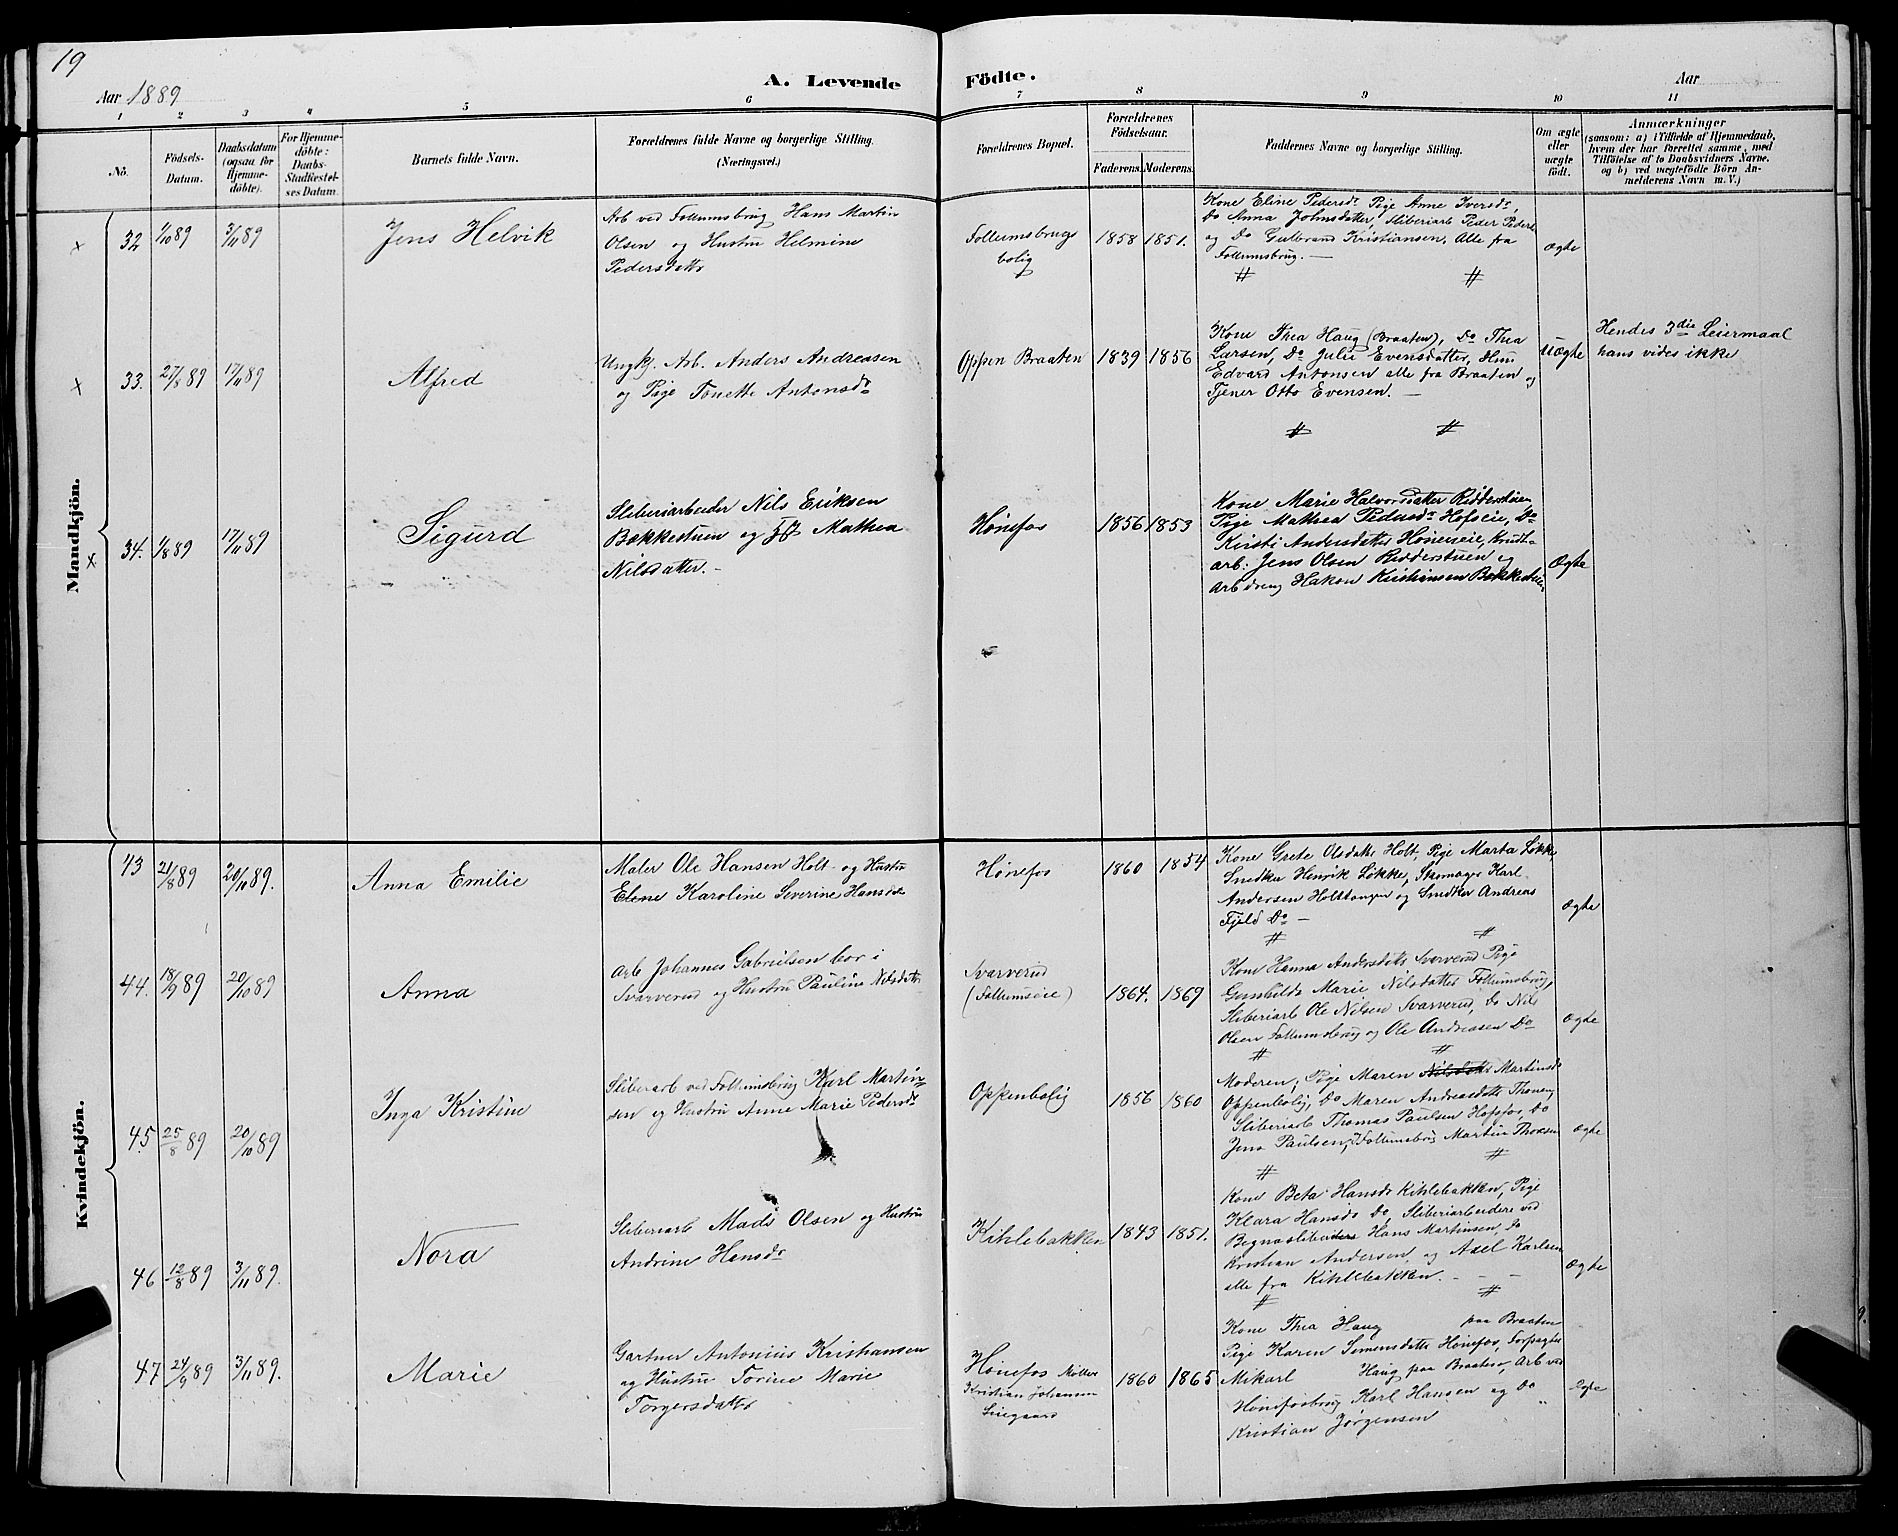 19
A. Levende Födte.
Aar 1889
Aar
1 2 3 4 5 6 7 8 9 10 11
No.
Födsels-
Datum.
Daabsdatum
(ogsaa for
Hjemme-
döbte).
For Hjemme-
döbte:
Daabs-
Stadfæstel-
ses Datum.
Barnets fulde Navn.
Forældrenes fulde Navne og borgerlige Stilling.
(Næringsvei.)
Forældrenes Bopæl.
Forældrenes
Födselsaar.
Faderens. Moderens.
Faddernes Navne og borgerlige Stilling.
Om ægte
eller
uægte
födt.
Anmærkninger
(saasom: a) i Tilfælde af Hjemmedaab,
hvem der har forrettet samme, med
Tilföielse af to Daabsvidners Navne,
og b) ved uægtefödte Börn An-
melderens Navn m. V.)
Mandkjön.
x 32 1/10 89 3/11 89
Jens Helvik
Arb ved Follumsbrug Hans Martin
Olsen og Hustru Helmine
Pedersdatter
Follumsbrugs
bolig
1858 1851.
Kone Eline Pedersd. Pige Anne Iversd.,
Do Anna Johnsdatter, Sliberiarb Peder Peders
og Do Gulbrand Kristiansen. Alle fra
Follumsbrug. —
# #
Ægte
x 33. 27/8 89 17/11 89
Alfred
Ungk. Arb. Anders Andreasen
og Pige Tonette Antonsd.
Oppen Braaten
1839 1856
Kone Thea Haug (Braaten), Do Thea
Larsen, Do Julie Evensdatter,
Edvard Antonsen alle fra Braaten og
Tjener Otto Evensen. —
# #
Uægte
Hendes 3die Leiermaal
hans vides ikke
x 34. 1/8 89 17/11 89
Sigurd
Sliberiarbeider Nils Eriksen
Bakkestuen og Mathea
Nilsdatter. -
Hønefos
1856 1853
Kone Marie Halvorsdatter Ridderstuen
Pige Mathea Pedersd. Hofseie, Do
Kirsti Andersdatter Høneneie,
arb. Jens Olsen Ridderstuen og
Arbdreng Hakon Kristiansen Bakkestuen
Ægte
Kvindekjön.
43 21/8 89 20/10 89.
Anna Emilie
Maler Ole Hansen Holt og Hustru
Elene Karoline Severine Hansd.
Hønefos
1860 1854
Kone Grete Olsdatter Holt, Pige Marta Løkke
Snedker Henrik Løkke, Skomager Karl
Andersen Holttangen og Snedker Andreas
Fjeld Do —
# #
Ægte
44. 18/9 89 20/10 89
Anna
Arb Johannes Gabrielsen bor i
Svarverud og Hustru Pauline Nilsdatter
Svarverud
(Follumseie)
1864. 1869
Kone Hanna Andersdatter Svarverud Pige
Gunhilda Marie Nilsdatter Follumsbrug,
Sliberiarb Ole Nilsen Svarverud, Do Nils
Olsen Follumsbrug og Ole Andreasen Do
# #
Ægte
45. 25/8 89 20/10 89
Inga Kristine
Sliberarb ved Follumsbrug Karl Martin-
sen og Hustru Anne Marie Pedersd.
Oppenbolig
1856 1860
Moderen, Pige Maren Martinsd.
Oppenbolig, Do Maren Andreasdatter
Sliberiarb Thomas Paulsen Hofsfos, Do
Jens Paulsen, Follumsbrug Martin Thoresen
# #
Ægte
46 12/8 89 3/11 89.
Nora
Sliberiarb Mads Olsen og Hustru
Andrine Hansd.
Kihlebakken
1843 1851.
Kone Beta Hansd. Kihlebakken, Pige
Klara Hansd. Do Sliberiarbeidere ved
Begnasliberiere Hans Martinsen, Do
Kristian Andersen og Axel Karlsen
alle fra Kihlebakken. — — —
# #
Ægte
47 24/9 89 3/11 89.
Marie
Gartner Antonius Kristiansen
og Hustru Torine Marie
Torgersdatter
Hønefos Møller
Kristian Johannsen
1860 1865
Kone Thea Haug paa Braaten
Pige Karen Simensdatter Hønefos, Forpagter
Mikael Haug paa Braaten, Arb ved
Hønefosbrug Karl Hansen og Do "
Kristian Jørgensen
Ægte